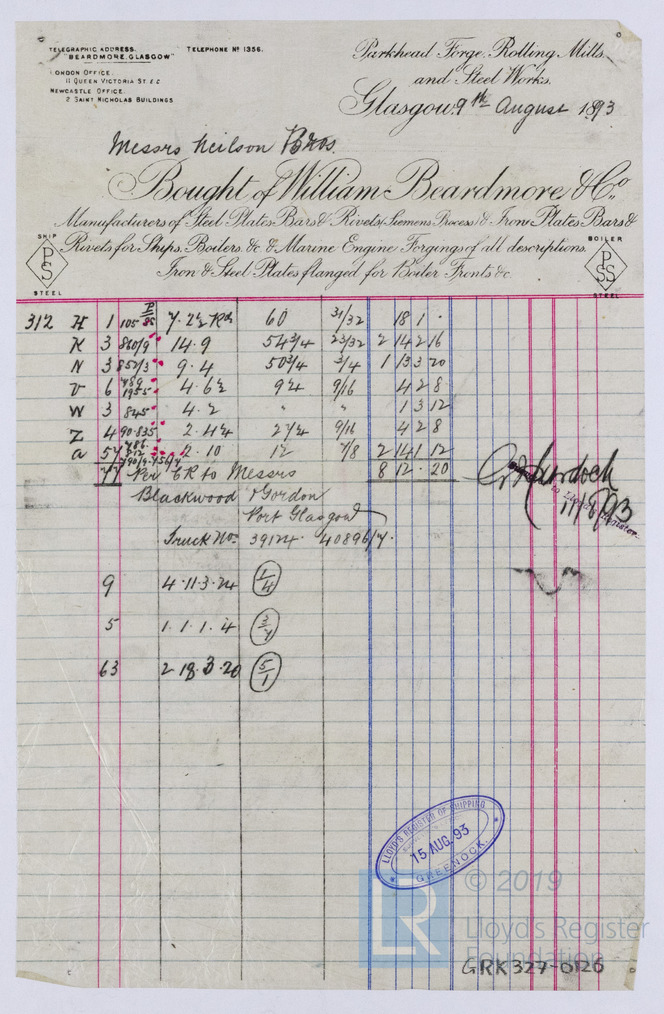 TELEGRAPHIC ADDRESS. TELEPHONE No 1356.
"BEARDMORE, GLASGOW"
LONDON OFFICE.
11 QUEEN VICTORIA ST. E.C.
NEWCASTLE OFFICE.
2 SAINT NICHOLAS BUILDINGS
Parkhead Forge, Rolling Mills,
and Steel Works.
Glasgow, 9th August 1893
Messrs Neilson Bros.
Bought of William Beardmore & Co.,
Manufacturers of Steel Plates Bars & Rivets (Siemens Process) & Iron Plates Bars &
Rivets for Ships, Boilers, &c. & Marine Engine Forgings of all descriptions.
Iron & Steel Plates flanged for Boiler Fronts &c.
SHIP PS STEEL
BOILER PSS STEEL
312 H 1 7.2½ Rd 60 31/32 18 1 .
K 3 860/9 14.9 54 3/4 23/32 2 14 2 16
N 3 852/3 9.4 50 3/4 3/4 1 13 3 20
V 6 1955 4.6½ 9/16 4 2 8
W 3 845 4.2 " " 1 3 12
Z 4 90.835 2.4½ 9/16 4 2 8
a 57 2.10 12 7/8 2 14 1 12
77 Per CR to Messrs 8 12 . 20
Blackwood & Gordon
Port Glasgow
Truck Nos. 39124. 40896/7.
9 4.11.3.24 1/4
5 1.1.1.4
63 2 18.3.20 5/1
Murdoch
11/8/93
to Lloyd's Register
LLOYD'S REGISTER OF SHIPPING
15 AUG. 93
GREENOCK
LR
© 2019
Lloyd's Register
Foundation
GRK327-0126